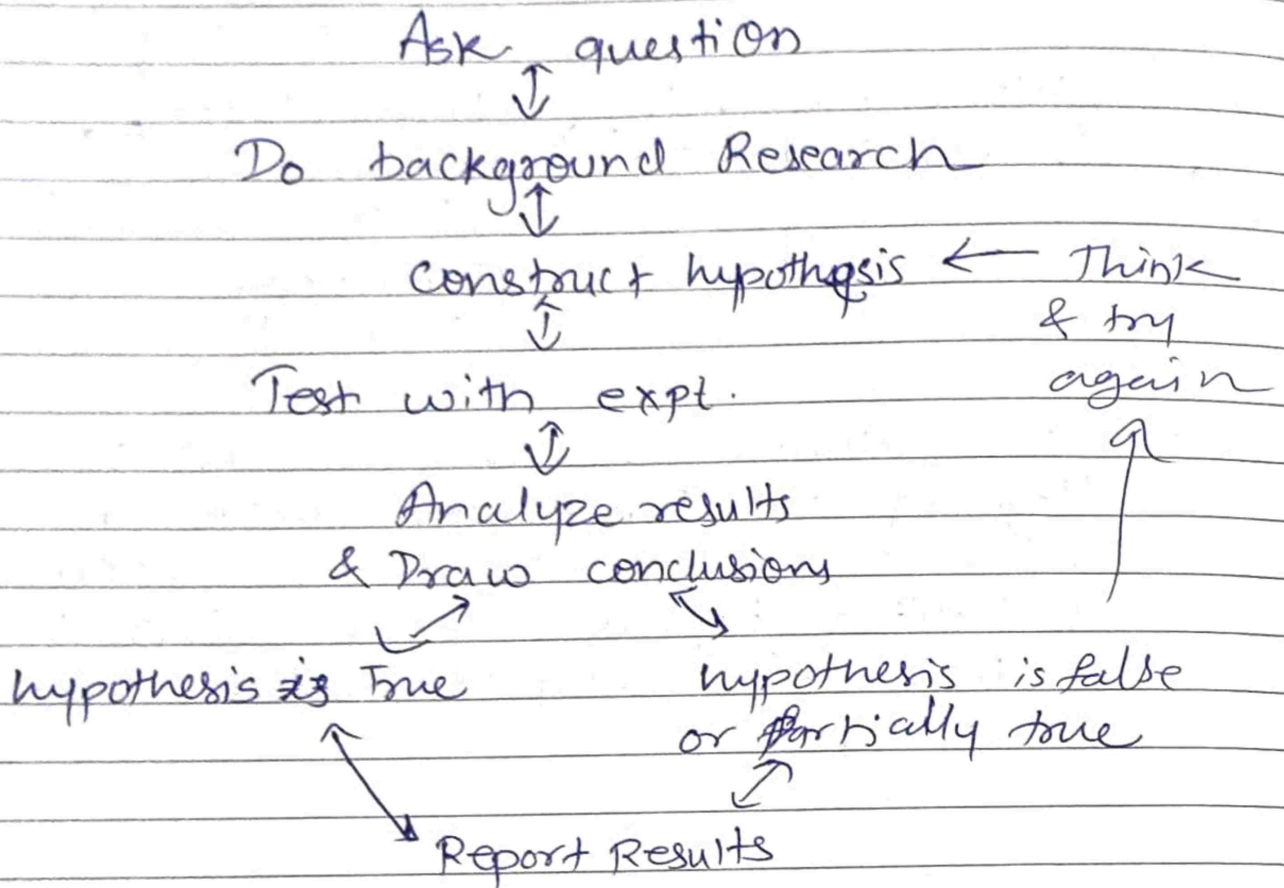 Ask question
Do background Research
Construct hypothesis ← Think
& try
again
Test with expt.
Analyze results
& Draw conclusions
hypothesis is True
hypothesis is false
or Partially true
Report Results